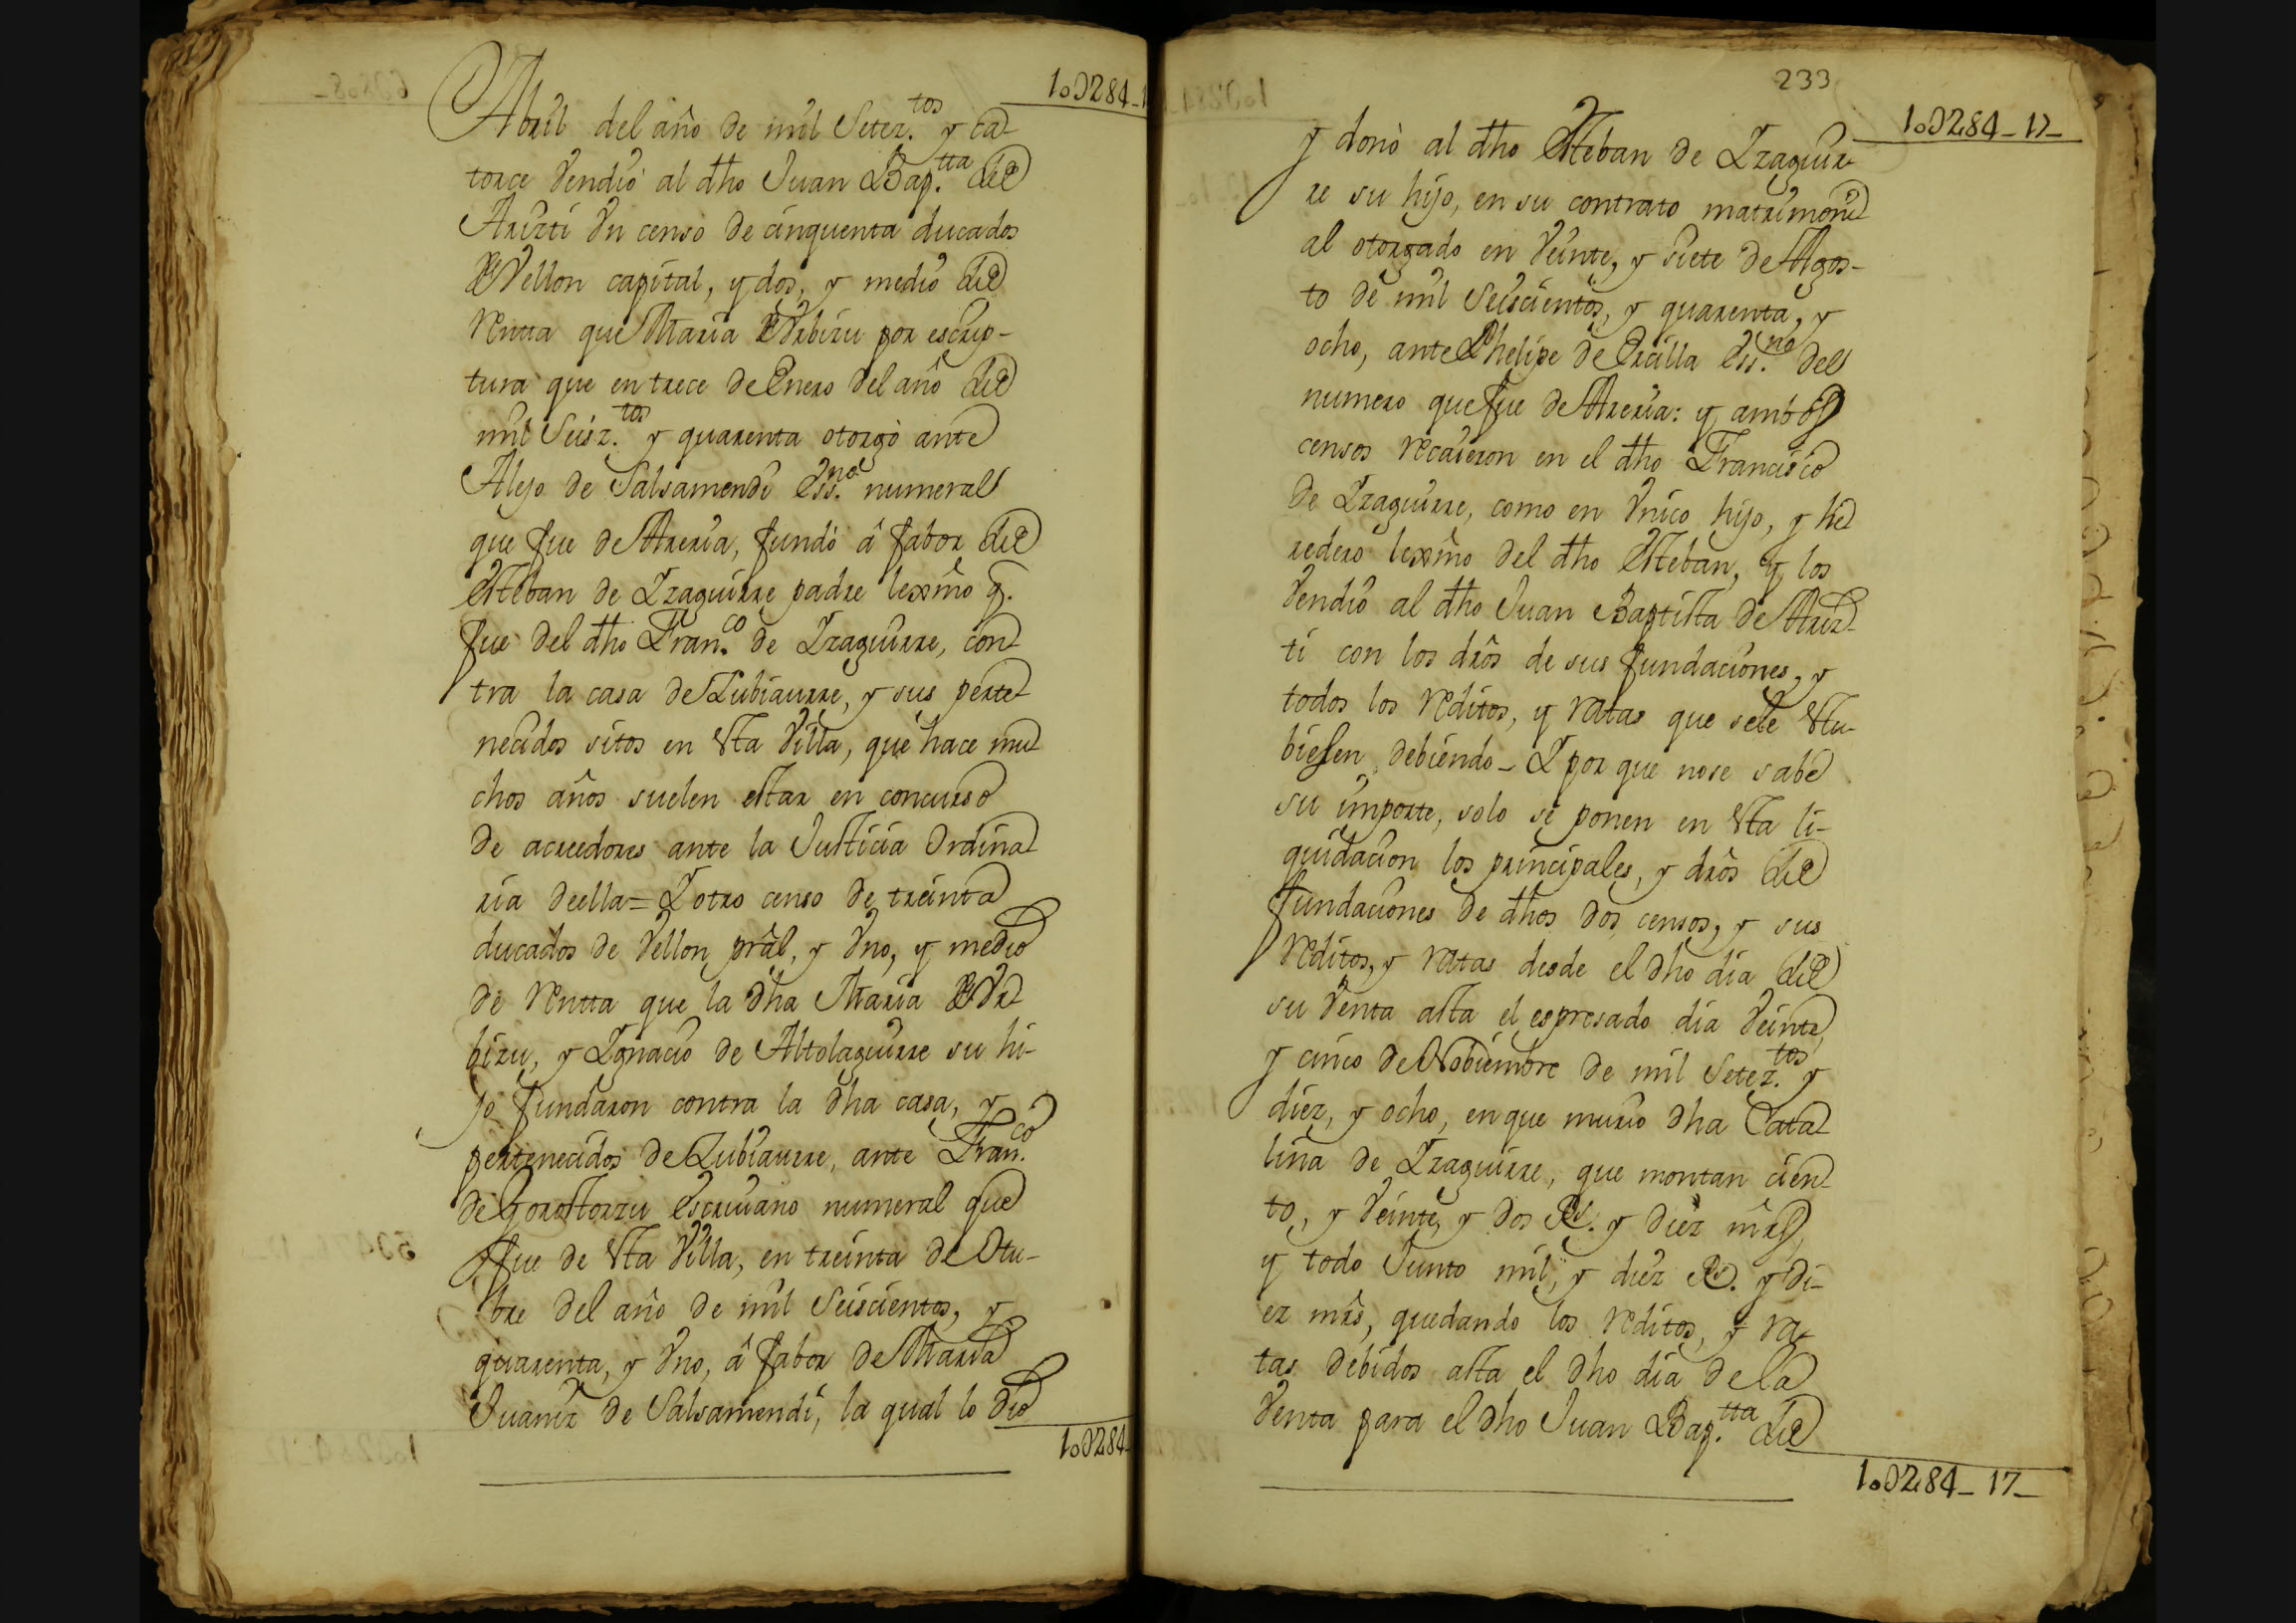 10D284-1
Abril del año de mil Setez.tos y ca-
torce Vendió al dho Juan Bap.tta de
Arizti Vn censo de cinquenta ducados
de Vellon capital, y dos, y medio de
renta que Maria de Vrbizu por escrip-
tura que en trece de Enero del año de
mil Seisz.tos y quarenta otorgó ante
Alejo de Salsamendi Ess.no numeral
que fue de Areria, fundó â fabor de
Esteban de Yzaguirre padre lexmo q.
fue del dho Fran.co de Yzaguirre, con-
tra la casa de Zubiaurre, y sus perte-
necidos sitos en esta Villa, que hace mu-
chos años suelen estar en concurso
de acreedores ante la Justicia Ordina-
ria deella= Y otro censo de treinta
ducados de Vellon prâl, y Vno, y medio
de renta que la dha Maria de Vr-
bizu, y Ygnacio de Altolaguirre su hi-
jo fundaron contra la dha casa, y
pertenecidos de Zubiaurre, ante Fran.co
de Gorostorzu escrivano numeral que
fue de esta Villa, en treinta de Otu-
bre del año de mil Seiscientos, y
quarenta, y Vno, â fabor de Maria
Juaniz de Salsamendi, la qual lo dio
10D284-
233
10D284-17-
y donó al dho Esteban de Yzaguir-
re su hijo, en su contrato matrimoni-
al otorgado en Veinte, y siete de Agos-
to de mil Seiscientos, y quarenta, y
ocho, ante Phelipe de Ercilla Ess.no del
numero que fue de Areria: y ambos
censos recaieron en el dho Francisco
de Yzaguirre, como en Vnico hijo, y he-
redero lexmo del dho Esteban, y los
Vendió al dho Juan Baptista de Ariz-
ti con los drôs de sus fundaciones, y
todos los reditos, y ratas que sele estu-
biesen debiendo- Y por que nose sabe
su importe, solo se ponen en esta li-
quidacion los principales, y drôs de
fundaciones de dhos dos censos, y sus
reditos, y ratas desde el dho dia de
su Venta asta el espresado dia Veinte,
y cinco de Nobiembre de mil Setez.tos y
diez, y ocho, en que murio dha Cata-
lina de Yzaguirre, que montan cien-
to, y Veinte, y dos Rs. y diez mrs,
y todo Junto mil, y diez Rs. y di-
ez mrs, quedando los reditos, y ra-
tas debidos asta el dho dia de la
Venta para el dho Juan Bap.tta de
10D284-17-